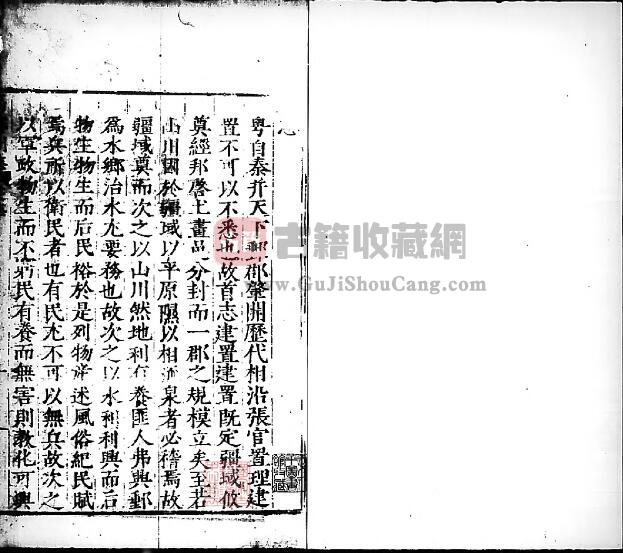 粤自秦并天下郡肇開歷代相沿張官置理建
置不可以不悉也故首志建置建置既定疆域攸
奠經邦啓土畫疆分封而一郡之規模立矣至若
山川國於疆域以平原隰以相泉者必稽焉故
疆域奠而次之以山川然地利有養匪人弗興鄞
為水鄉治水尤要務也故次之以水利利興而后
物生物生而后民俗於是列物産述風俗紀民賦
焉兵所以衛民者也有民尤不可以無兵故次之
以軍政物生而不窮民有養而無害則教化可興
古籍收藏網
www.GuJiShouCang.com